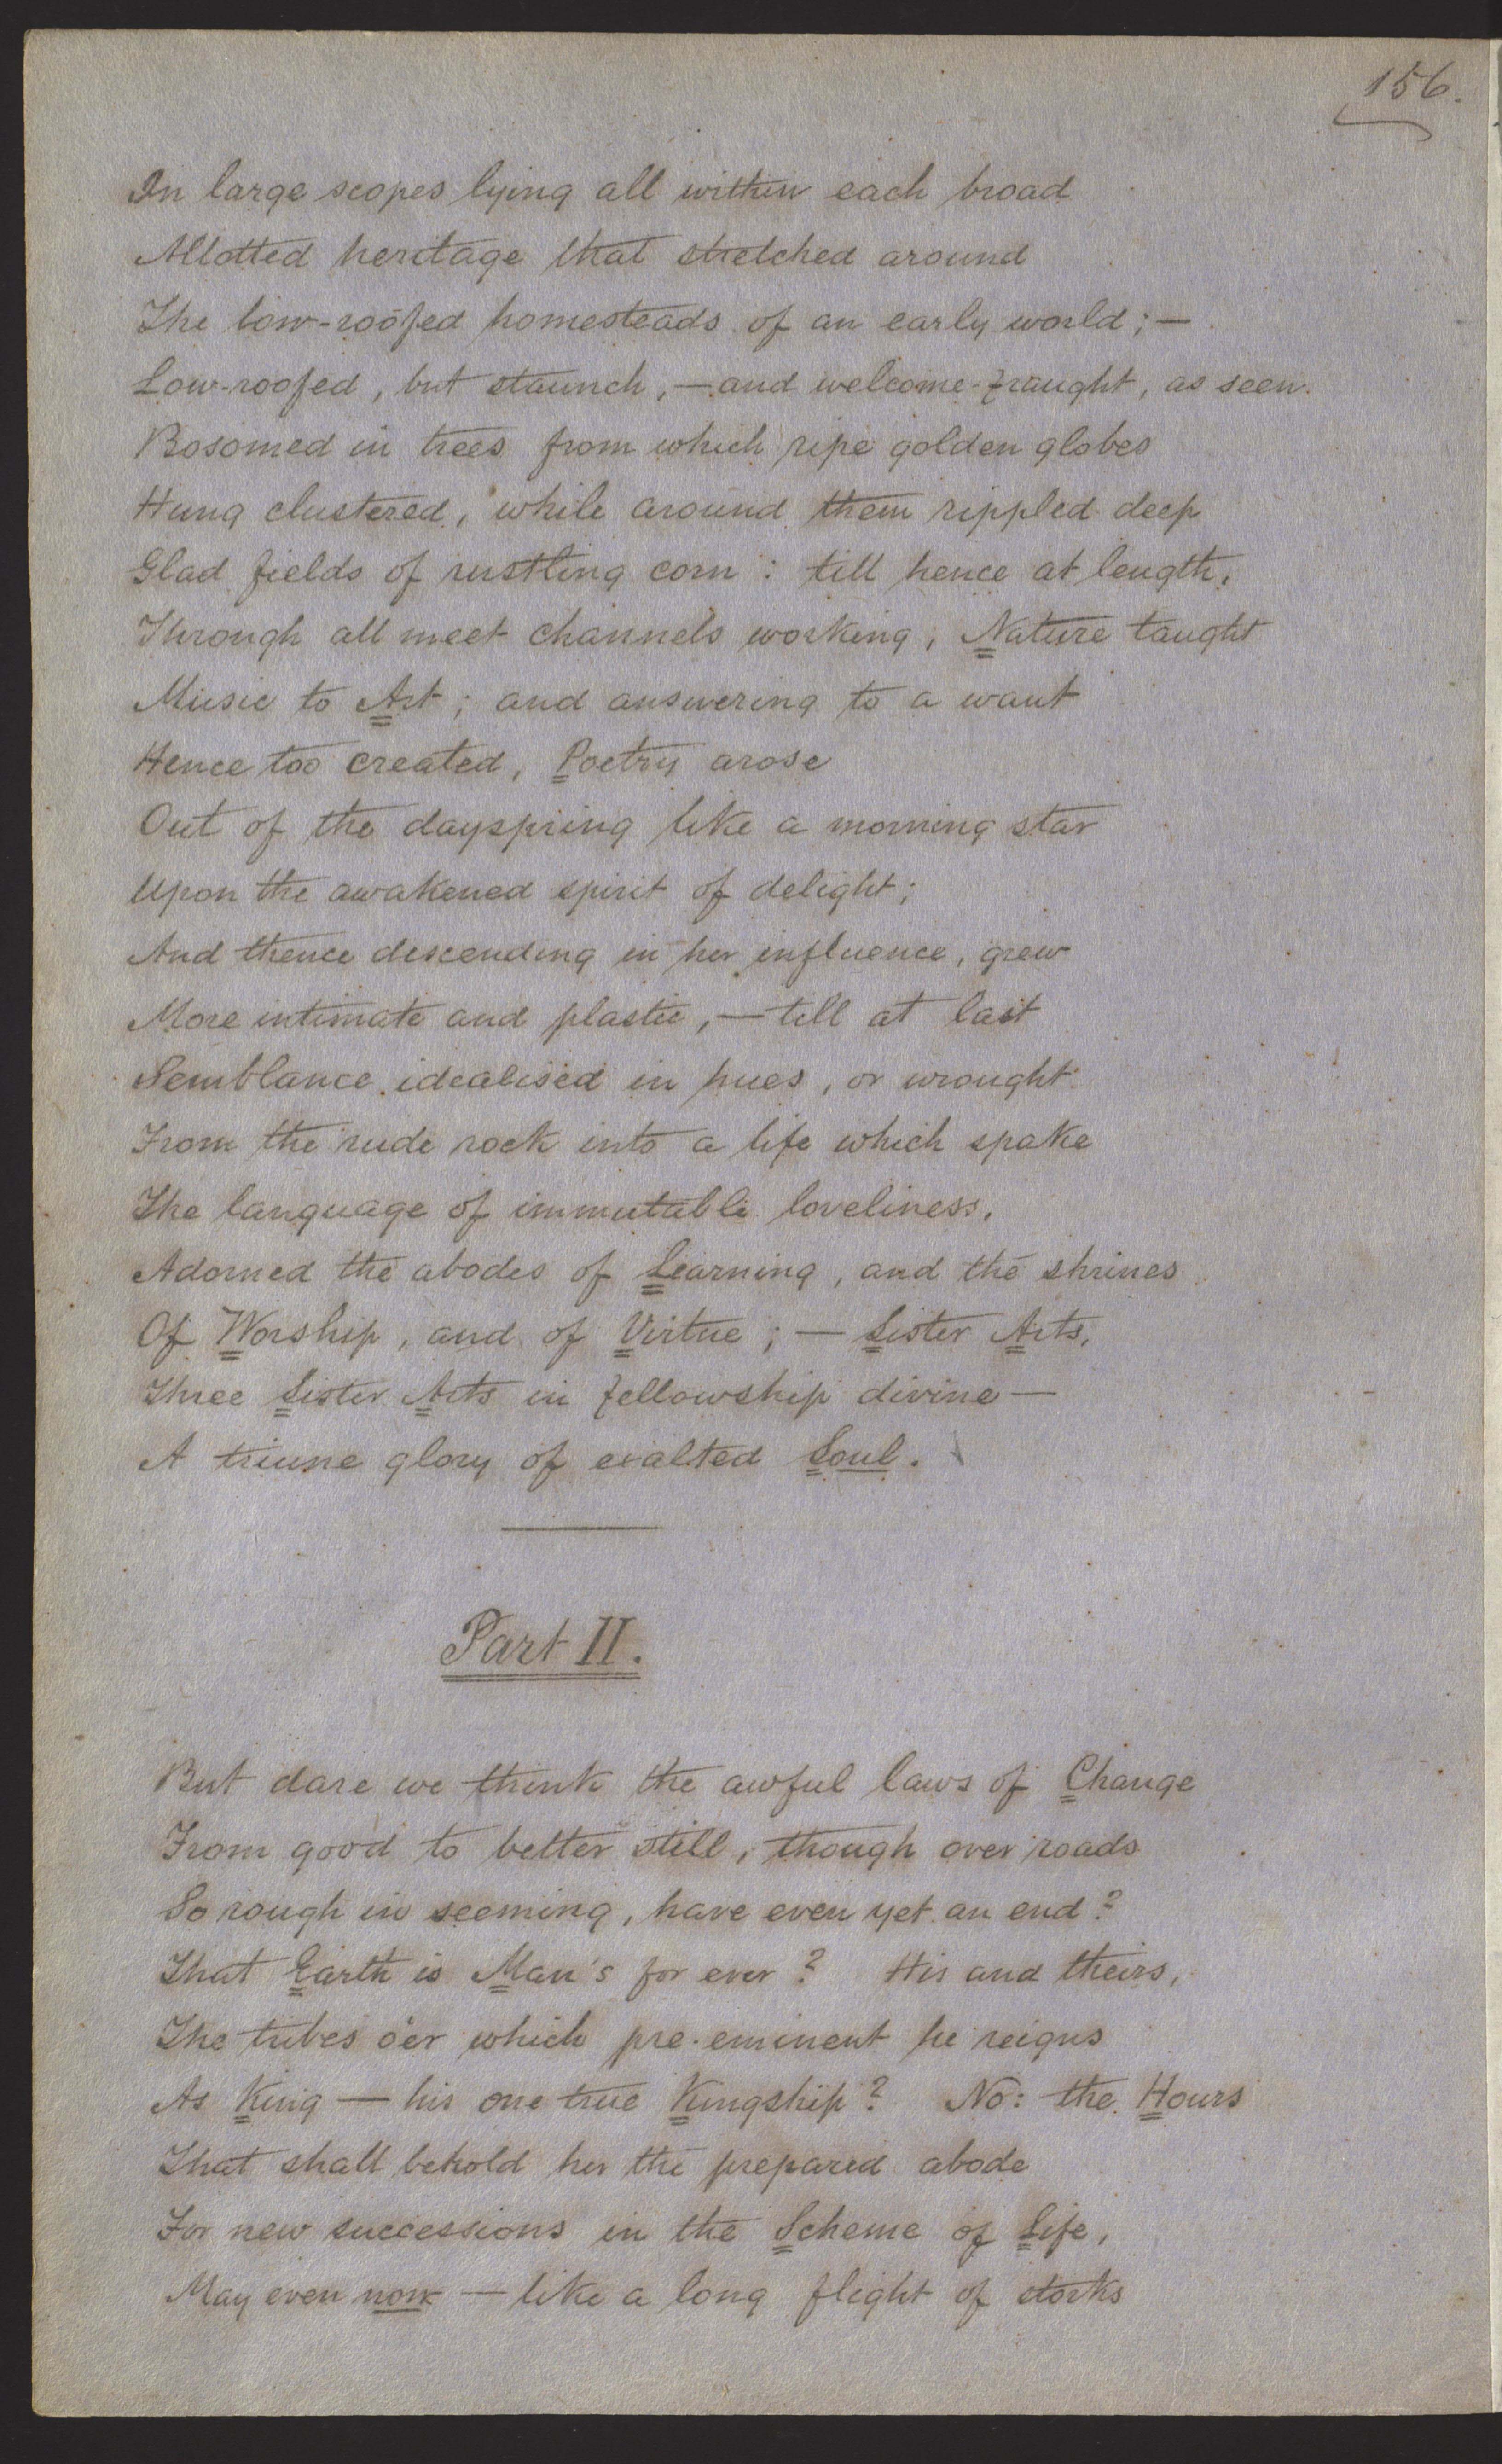 156.
In large scopes lying all within each broad
Allotted heritage that stretched around
The low-roofed homesteads of an early world;—
Low-roofed, but staunch,—and welcome-fraught, as seen
Bosomed in trees from which ripe golden globes
Hung clustered, while around them rippled deep
Glad fields of rustling corn: till hence at length,
Through all meet channels working, Nature taught
Music to Art; and answering to a want
Hence too created, Poetry arose
Out of the dayspring like a morning star
Upon the awakened spirit of delight;
And thence descending in her influence, grew
More intimate and plastic,—till at last
Semblance idealised in hues, or wrought
From the rude rock into a life which spake
The language of immutable loveliness,
Adorned the abodes of Learning, and the shrines
Of Worship, and of Virtue;—Sister Arts,
Three Sister Arts in fellowship divine—
A triune glory of exalted Soul.
Part II.
But dare we think the awful laws of Change
From good to better still, though over roads
So rough in seeming, have even yet an end?
That Earth is Man's for ever? His and theirs,
The tribes o'er which pre-eminent he reigns
As King—his one true Kingship? No: the Hours
That shall behold her the prepared abode
For new successions in the Scheme of Life,
May even now—like a long flight of storks